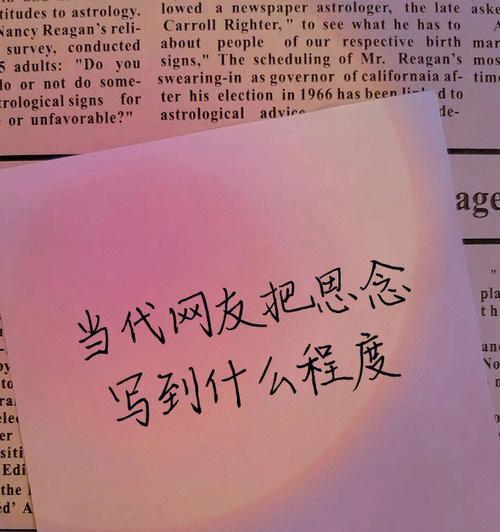 titudes to astrology.
Nancy Reagan's reli-
survey, conducted
5 adults: "Do you
lo or not do some-
trological signs for
e or unfavorable?"
lowed a newspaper astrologer, the late
Carroll Righter," to see what he has to
about people of our respective birth
signs," The scheduling of Mr. Reagan's
swearing-in as governor of californaia af-
ter his election in 1966 has been linked to
astrological advice
de-
aske
mar
mos
time
age
当代网友把思念
写到什么程度
"
pla
th
and
No
by
to
ra
elec
er
siti
Edi
the
ed' A